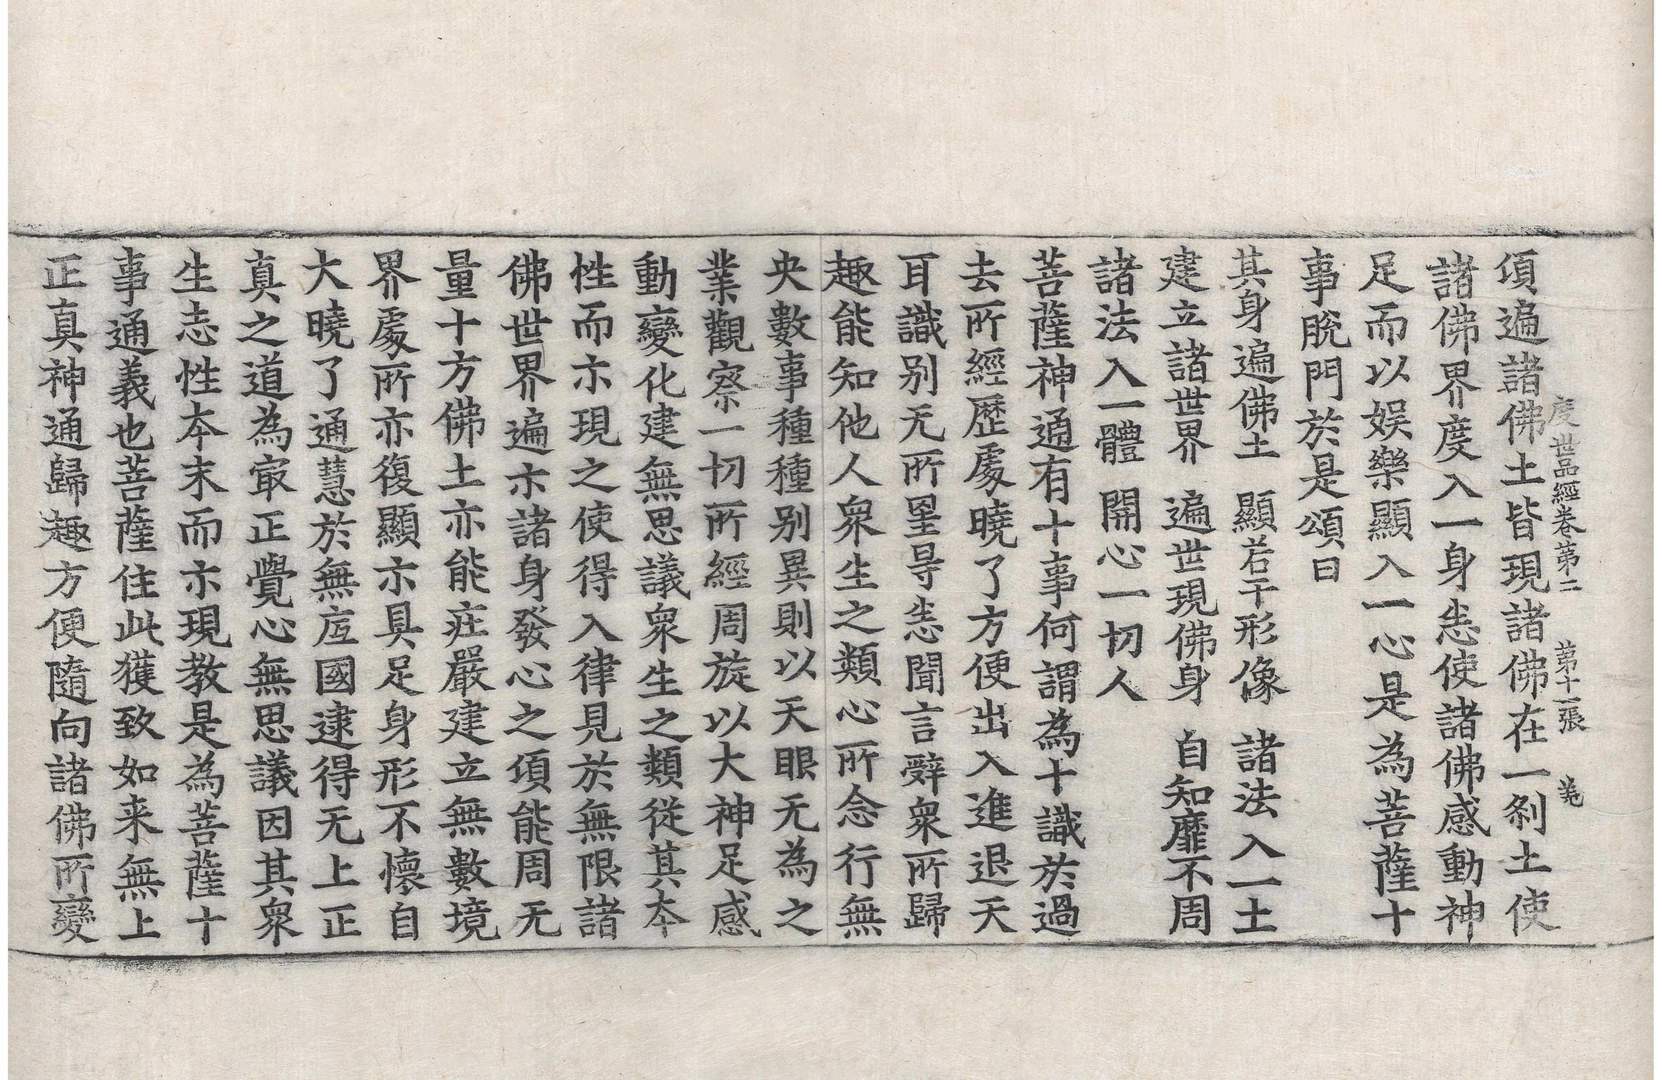 度世品經卷第二　第十一張　羌
項遍諸佛土皆現諸佛在一刹土使
諸佛界度入一身恚使諸佛感動神
足而以娱樂顯入一心是為菩薩十
事脫門於是頌曰
其身遍佛土　顯若干形像　諸法入一土
建立諸世界　遍世現佛身　自知靡不周
諸法入一體　開心一切人
菩薩神通有十事何謂為十識於過
去所經歷處曉了方便出入進退天
耳識别无所罣㝵恚聞言辭衆所歸
趣能知他人衆生之類心所念行無
央數事種種别異則以天眼无為之
業觀察一切所經周旋以大神足感
動變化建無思議衆生之類從其夲
性而示現之使得入律見於無限諸
佛世界遍示諸身發心之項能周无
量十方佛土亦能庄嚴建立無數境
界處所亦復顯示具足身形不懷自
大曉了通慧於無㡳國逮得无上正
真之道為㝡正覺心無思議因其衆
生志性夲末而示現教是為菩薩十
事通義也菩薩住此獲致如来無上
正真神通歸趣方便隨向諸佛所變